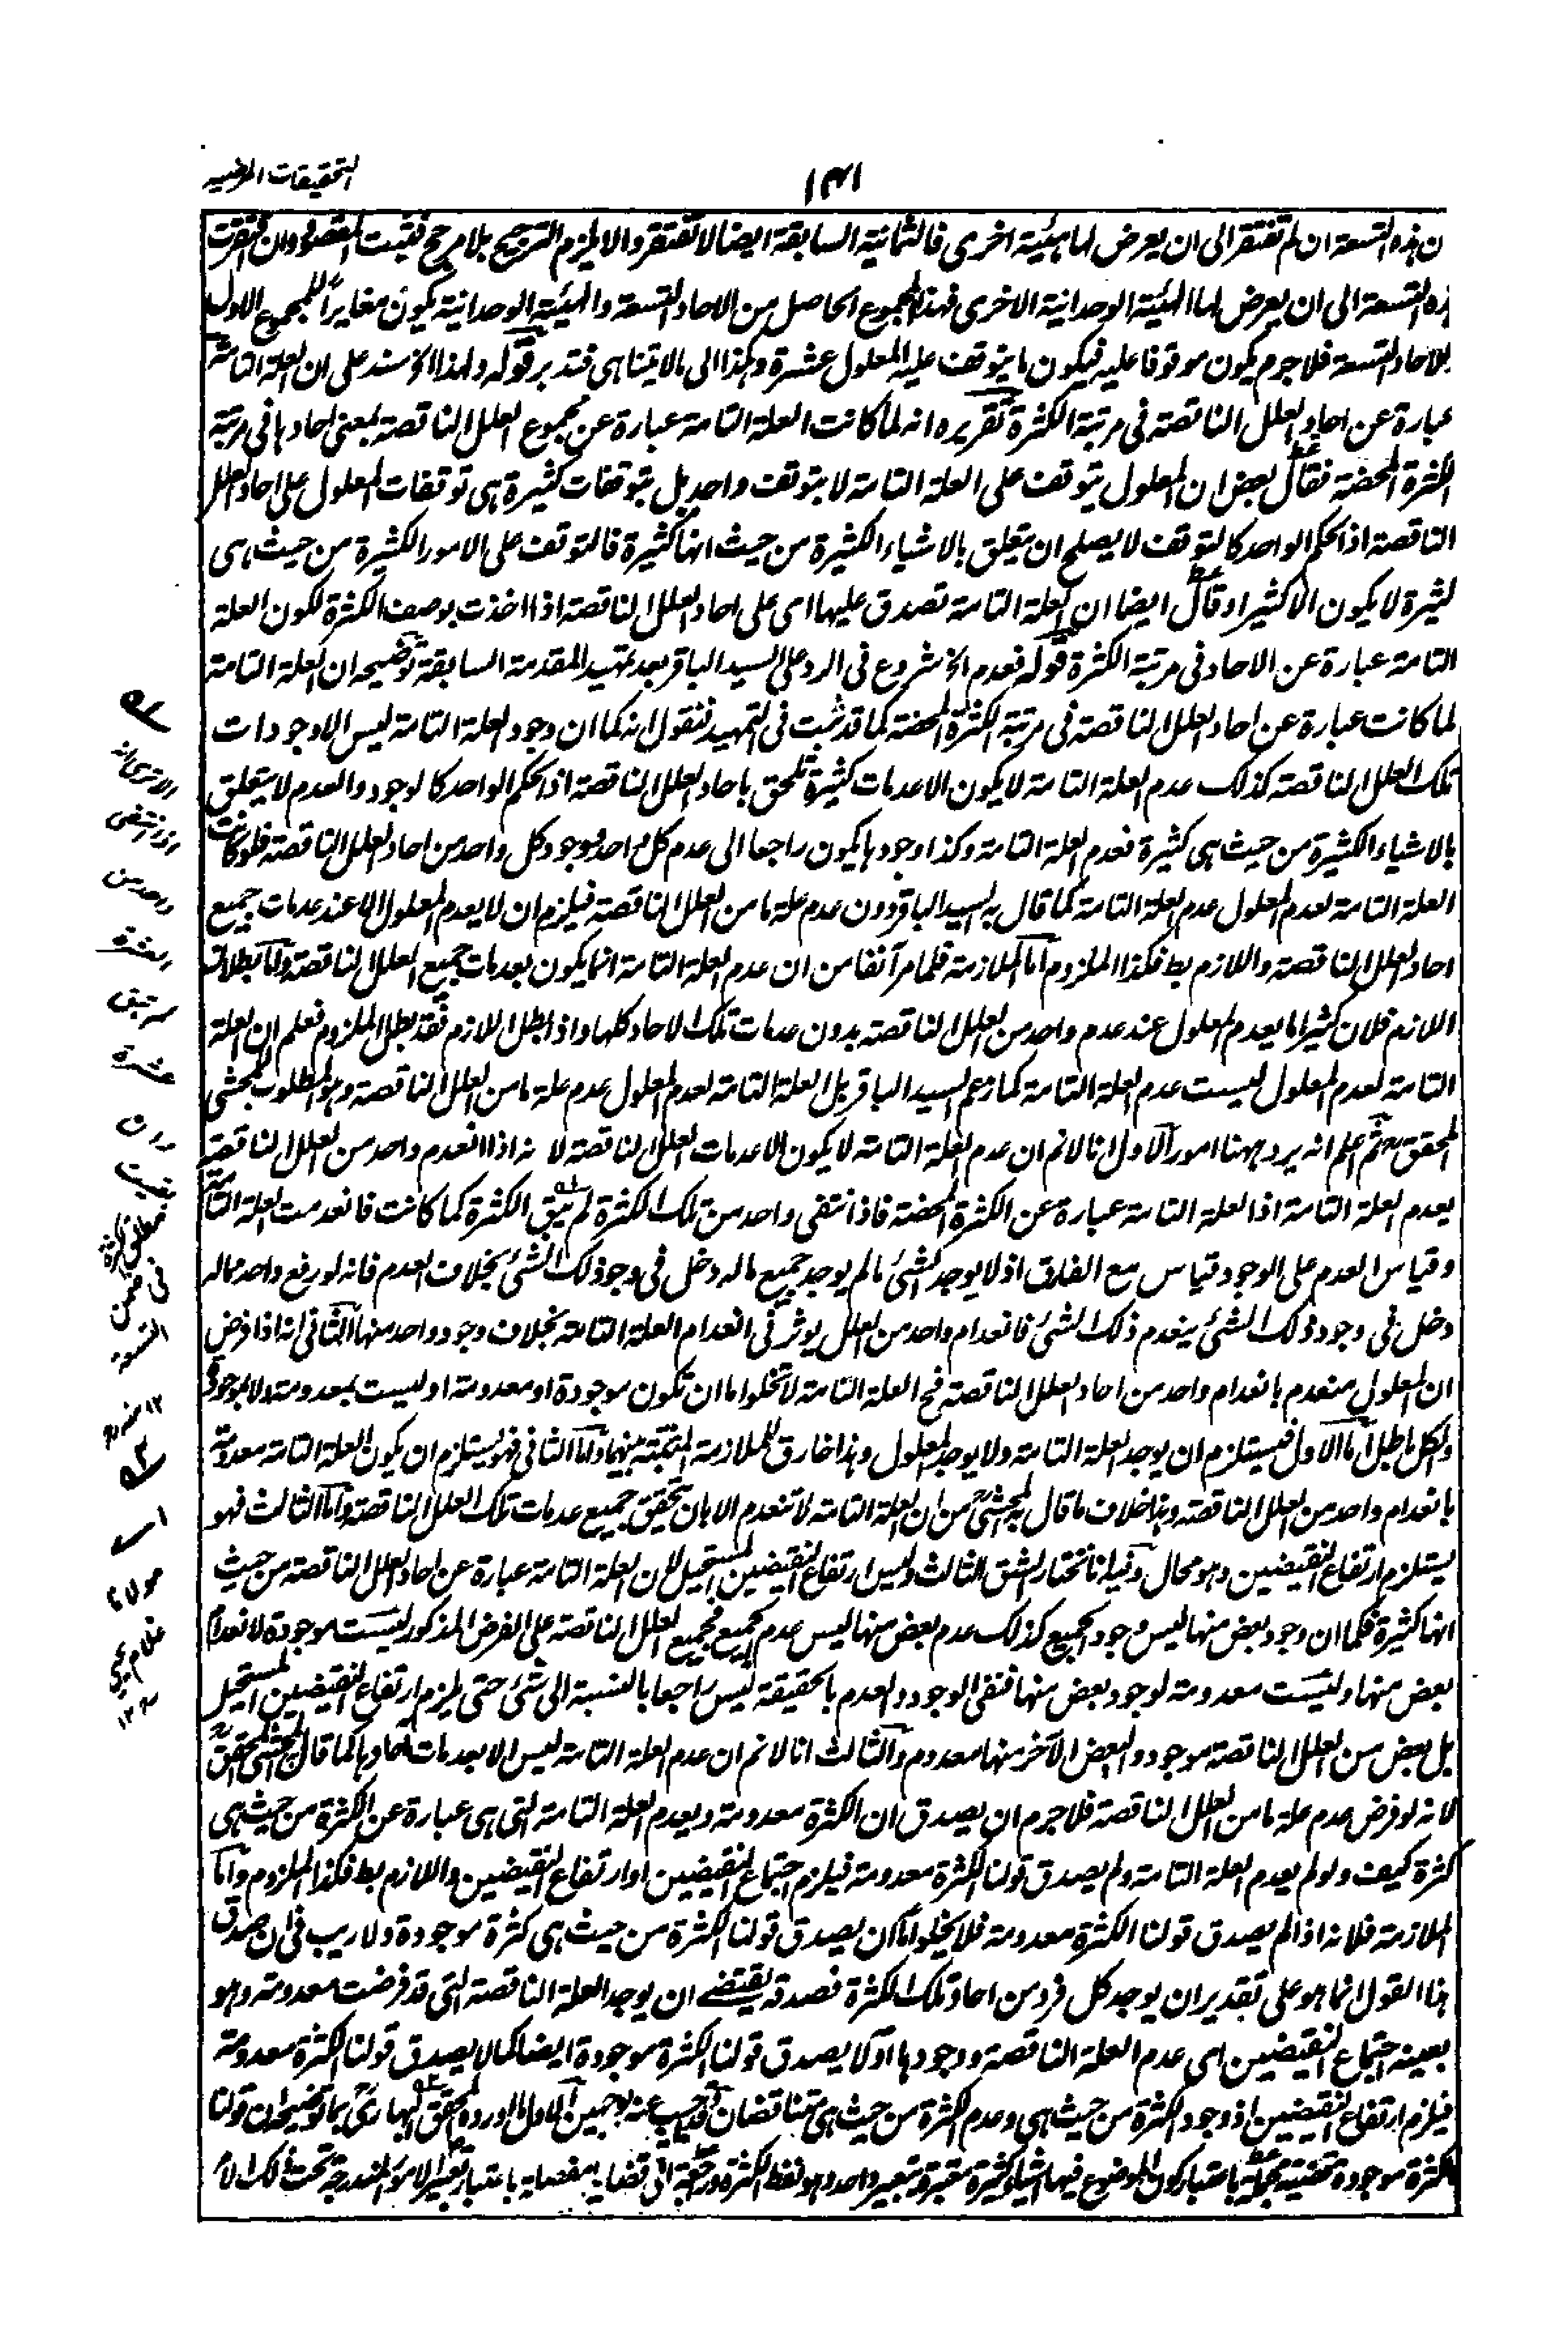 التحقيقات المرضيه
١٣١
ن هذه التسعة ان لم تفتقر الى ان يعرض لها هيئية اخرى فالثمانية السابقة ايضا لا تفتقر والا يلزم الترجيح بلا مرجح فثبت المقصود وان افتقرت
ذه التسعة الى ان يعرض لها الهيئية الوحدانية الاخرى فهذا المجموع الحاصل من الاحاد التسعة والهيئية الوحدانية يكون مغايرا للمجموع الاول
للاحاد التسعة فلاجرم يكون موقوفا عليه فيكون ما يتوقف عليه المعلول عشرة وهكذا الى مالا يتناهى فتدبر قوله ولهذا الخ سند على ان العلة التامة
عبارة عن احاد العلل الناقصة فى مرتبة الكثرة تقريره انه لما كانت العلة التامة عبارة عن مجموع العلل الناقصة بمعنى احادها فى مرتبة
الكثرة المحضة فقال بعض ان المعلول يتوقف على العلة التامة لا بتوقف واحد بل بتوقفات كثيرة هى توقفات المعلول على احاد العلل
الناقصة اذ الحكم الواحد كالتوقف لا يصلح ان يتعلق بالاشياء الكثيرة من حيث انها كثيرة فالتوقف على الامور الكثيرة من حيث هى
كثيرة لا يكون الا كثيرا وقال ايضا ان العلة التامة تصدق عليها اى على احاد العلل الناقصة اذا اخذت بوصف الكثرة لكون العلة
التامة عبارة عن الاحاد فى مرتبة الكثرة قوله فعدم الخ شروع فى الرد على السيد الباقر بعد تمهيد المقدمة السابقة توضيحه ان العلة التامة
لما كانت عبارة عن احاد العلل الناقصة فى مرتبة الكثرة المحضة كما قد ثبت فى التمهيد فنقول انه كما ان وجود العلة التامة ليس الا وجودات
تلك العلل الناقصة كذلك عدم العلة التامة لا يكون الا عدمات كثيرة تلحق باحاد العلل الناقصة اذ الحكم الواحد كالوجود والعدم لا يتعلق
بالاشياء الكثيرة من حيث هى كثيرة فعدم العلة التامة وكذا وجودها يكون راجعا الى عدم كل واحد ووجود كل واحد من احاد العلل الناقصة فلو كانت
العلة التامة لعدم المعلول عدم العلة التامة كما قال به السيد الباقر دون عدم علة ما من العلل الناقصة فيلزم ان لا يعدم المعلول الا عند عدمات جميع
احاد العلل الناقصة واللازم بط فكذا الملزوم اما الملازمة فلما مر آنفا من ان عدم العلة التامة انما يكون بعدمات جميع العلل الناقصة واما بطلان
اللازم فلان كثيرا ما يعدم المعلول عند عدم واحد من العلل الناقصة بدون عدمات تلك الاحاد كلها واذا بطل اللازم فقد بطل الملزوم فعلم ان العلة
التامة لعدم المعلول ليست عدم العلة التامة كما زعم السيد الباقر بل العلة التامة لعدم المعلول عدم علة ما من العلل الناقصة وهو المطلوب للمحشى
المحقق ثم اعلم انه يرد ههنا امور الاول انا لانم ان عدم العلة التامة لا يكون الا عدمات العلل الناقصة لا نه اذا انعدم واحد من العلل الناقصة
يعدم العلة التامة اذ العلة التامة عبارة عن الكثرة المحضة فاذا انتفى واحد من تلك الكثرة لم تبق الكثرة كما كانت فانعدمت العلة التامة
وقياس العدم على الوجود قياس مع الفارق اذ لا يوجد الشئ ما لم يوجد جميع ماله دخل فى وجود ذلك الشئ بخلاف العدم فانه لو رفع واحد مماله
دخل فى وجود ذلك الشئ ينعدم ذلك الشئ فانعدام واحد من العلل يوثر فى انعدام العلة التامة بخلاف وجود واحد منها الثانى انه اذا فرض
ان المعلول منعدم بانعدام واحد من احاد العلل الناقصة فح العلة التامة لا تخلوا ما ان تكون موجودة او معدومة او ليست بمعدومة ولا بموجودة
والكل باطل اما الاول فيستلزم ان يوجد العلة التامة ولا يوجد المعلول وهذا خارق للملازمة المتحققة بينهما واما الثانى فهو يستلزم ان يكون العلة التامة معدومة
بانعدام واحد من العلل الناقصة وهذا خلاف ما قال به المحشى من ان العلة التامة لا تنعدم الا بان تحقيق جميع عدمات تلك العلل الناقصة واما الثالث فهو
يستلزم ارتفاع النقيضين وهو محال وفيه انا نختار الشق الثالث وليس ارتفاع النقيضين المستحيل لان العلة التامة عبارة عن احاد العلل الناقصة من حيث
انها كثيرة فكما ان وجود بعض منها ليس وجود الجميع كذلك عدم بعض منها ليس عدم الجميع فجميع العلل الناقصة على الفرض المذكور ليست موجودة لانعدام
بعض منها وليست معدومة لوجود بعض منها فنفى الوجود والعدم بالحقيقة ليس راجعا بالنسبة الى شئ حتى يلزم ارتفاع النقيضين المستحيل
بل بعض من العلل الناقصة موجود والبعض الآخر منها معدوم والثالث انا لانم ان عدم العلة التامة ليس الا بعدمات احادها كما قال المحشى المحقق
لانه لو فرض عدم علة ما من العلل الناقصة فلاجرم ان يصدق ان الكثرة معدومة ويعدم العلة التامة التى هى عبارة عن الكثرة من حيث هى
كثرة كيف ولو لم يعدم العلة التامة ولم يصدق قولنا الكثرة معدومة فيلزم اجتماع النقيضين او ارتفاع النقيضين واللازم بط فكذا الملزوم واما
الملازمة فلانه اذا لم يصدق قولنا الكثرة معدومة فلا يخلو اما ان يصدق قولنا الكثرة من حيث هى كثرة موجودة ولا ريب فى ان صدق
هذا القول انما هو على تقدير ان يوجد كل فرد من احاد تلك الكثرة فصدقه يقتضے ان يوجد العلة الناقصة التى قد فرضت معدومة وهو
بعينه اجتماع النقيضين اى عدم العلة الناقصة ووجودها او لا يصدق قولنا الكثرة موجودة ايضا كما لا يصدق قولنا الكثرة معدومة
فيلزم ارتفاع النقيضين اذ وجود الكثرة من حيث هى وعدم الكثرة من حيث هى متناقضان وقد اجيب عنه بوجهين الاول ما اورده المحقق البهارى بما توضيحه ان قولنا
الكثرة موجودة قضية مجملة باعتبار كون الموضوع فيها اشياء كثيرة معتبرة بتعبير واحد وهو لفظ الكثرة وراجعة الى قضايا مفصلة باعتبار تعبير الامور المندرجة تحت ذلك لا
الا ترى انه
اذا انتفى
واحد من
العشرة
لم تبق
عشرة
وان
بقيت
مطلق الكثرة
فى ضمن
التسعة
١٢ منه
مولانا
غلام يحيى
١٢